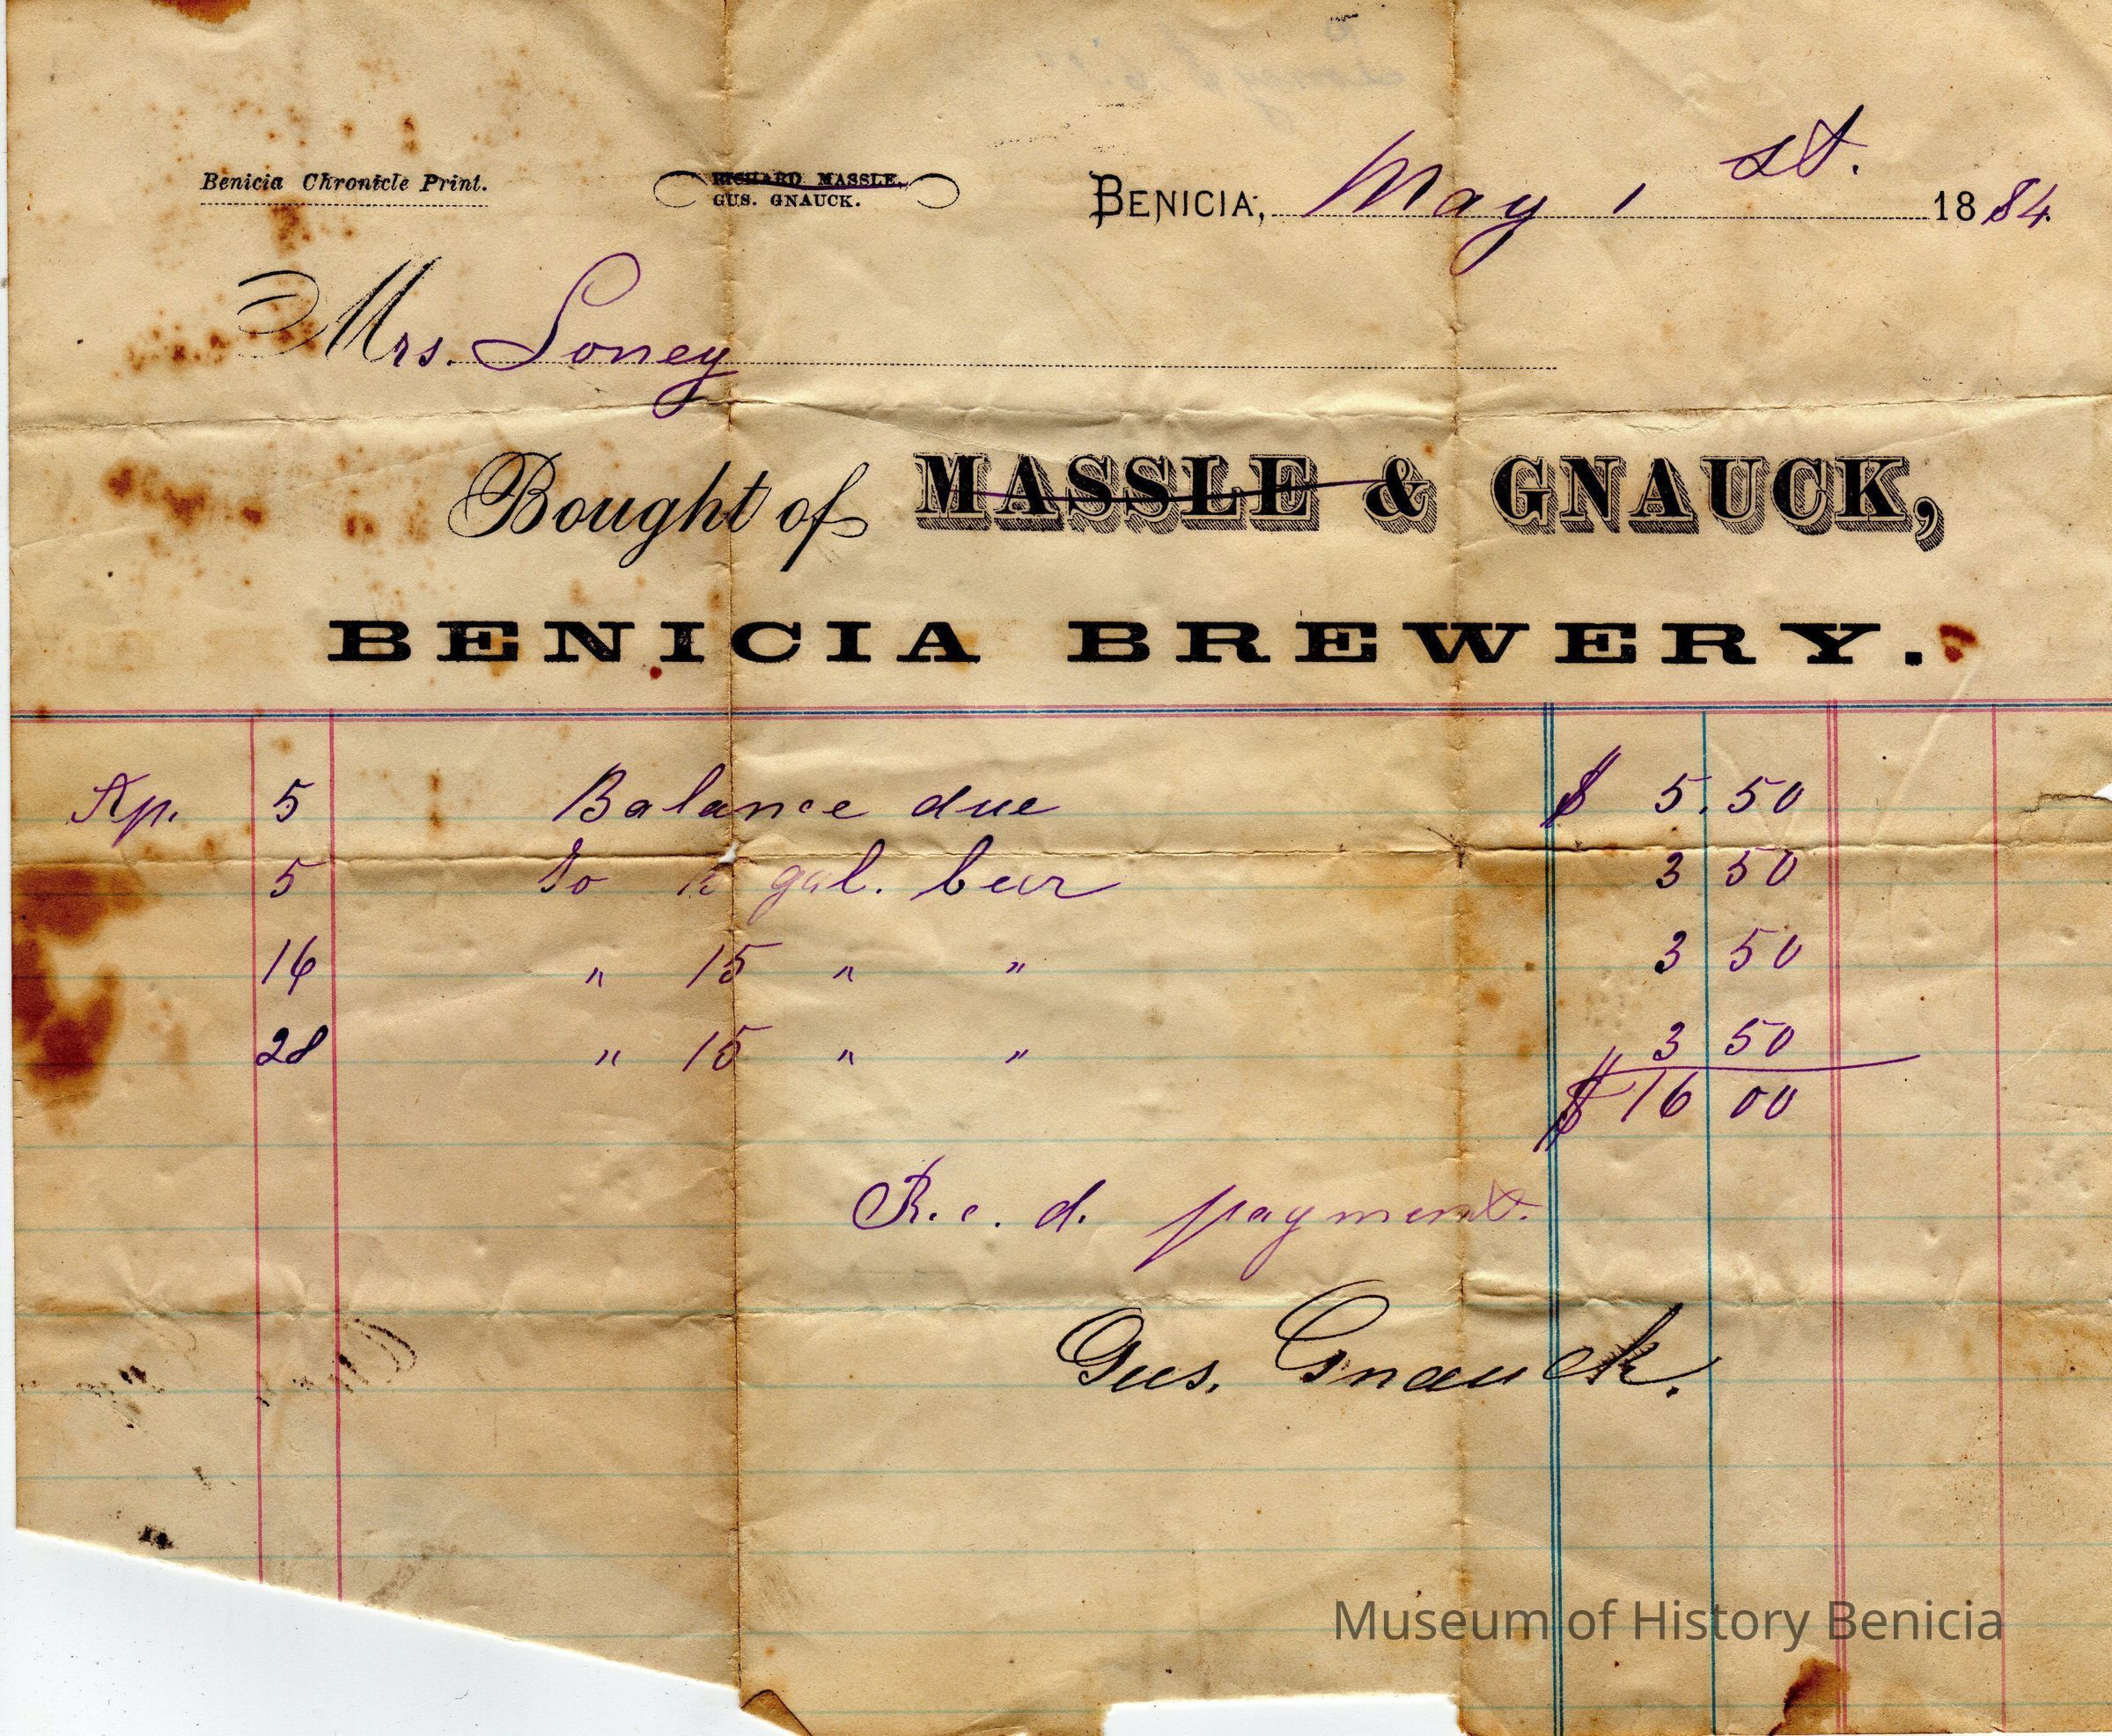 Benicia Chronicle Print.
RICHARD MASSLE,
GUS. GNAUCK.
BENICIA, May 1 st. 1884.
Mrs. Loney
Bought of MASSLE & GNAUCK,
BENICIA BREWERY.
Ap. 5 Balance due $ 5.50
5 To 15 gal. beer 3 50
16 " 15 " " 3 50
28 " 15 " " 3 50
$ 16 00
R.c.d. payment.
Gus. Gnauck.
Museum of History Benicia